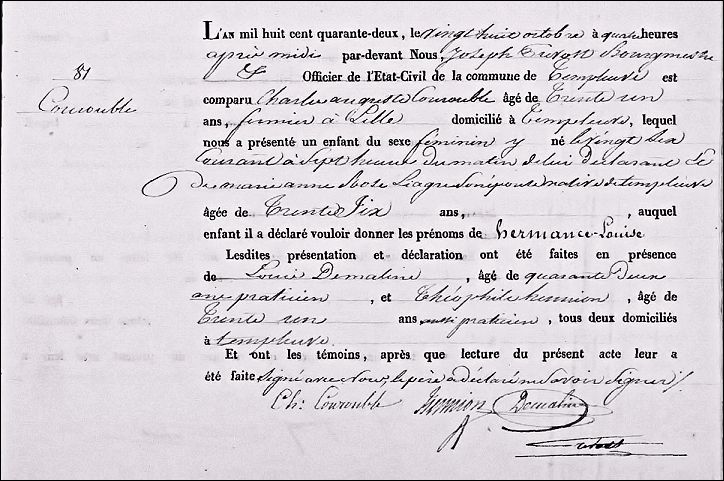 81
Courouble
L'AN mil huit cent quarante-deux, le vingt huit octobre à quatre heures
après midi par-devant Nous, Joseph Bourgmestre
Officier de l'Etat-Civil de la commune de Templeuve est
comparu Charles auguste Courouble âgé de Trente un
ans, fermier à Lille domicilié à templeuve, lequel
nous a présenté un enfant du sexe féminin y né le vingt six
Courant à Sept heures du matin de lui déclarant &
De marie anne Rose Liagre Son épouse native de templeuve
âgée de Trente Six ans, , auquel
enfant il a déclaré vouloir donner les prénoms de hermance-Louise
Lesdites présentation et déclaration ont été faites en présence
de Louis Dematine , âgé de quarante Deux
ans praticien , et Théophile hennion , âgé de
Trente un ans aussi praticien, tous deux domiciliés
à templeuve.
Et ont les témoins, après que lecture du présent acte leur a
été faite Signé avec Nous, le père a déclaré Savoir Signer /.
Ch: Courouble hennion Dematine